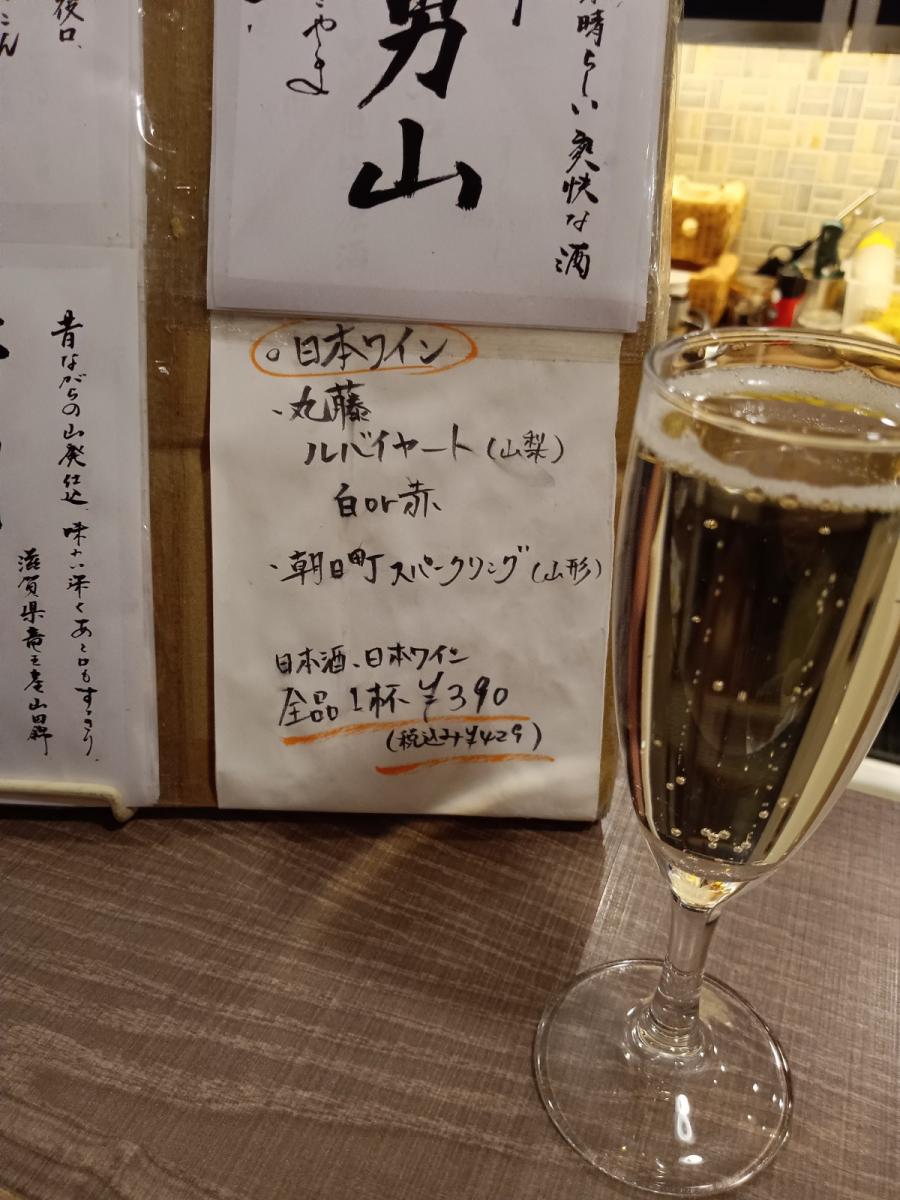 晴らしい爽快な酒
男山
やま
日本ワイン
・丸藤
ルバイヤート(山梨)
白or赤
・朝日町スパークリング(山形)
日本酒、日本ワイン
全品1杯¥390
(税込み¥429)
後口、
昔ながらの山廃仕込、味わい深くあと口もすっきり。
滋賀県竜王産山田錦